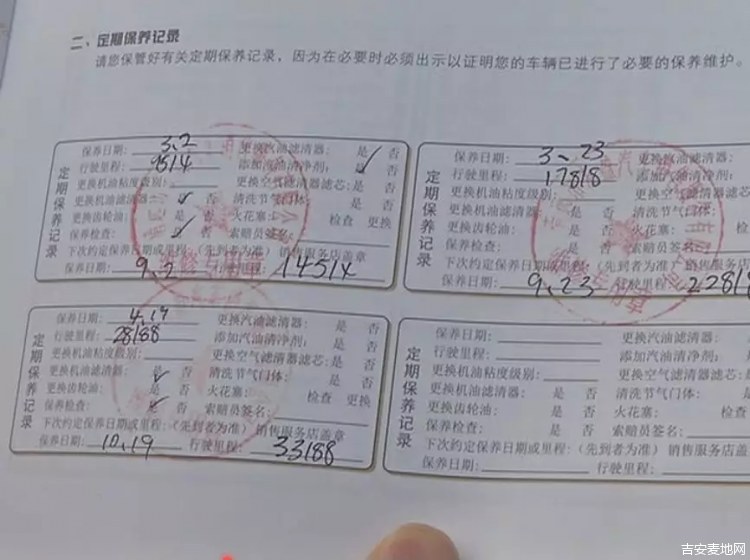 二、定期保养记录
请您保管好有关定期保养记录，因为在必要时必须出示以证明您的车辆已进行了必要的保养维护。
定期保养记录
保养日期：3.2 更换汽油滤清器： 是 否
行驶里程：9514 添加汽油清净剂： 是 否
更换机油粘度级别： 更换空气滤清器滤芯：是 否
更换机油滤清器： 是 否 清洗节气门体： 是 否
更换齿轮油： 是 否 火花塞： 检查 更换
保养检查： 是 否 索赔员签名：
下次约定保养日期或里程：（先到者为准）销售服务店盖章
保养日期：9.2 行驶里程：14514
定期保养记录
保养日期：3、23 更换汽油滤清器：
行驶里程：17818 添加汽油清净剂：
更换机油粘度级别： 更换空气滤
更换机油滤清器： 是 否 清洗节气门体：
更换齿轮油： 是 否 火花塞：
保养检查： 是 否 索赔员签名：
下次约定保养日期或里程：（先到者为准）销售服务
保养日期：9.23 行驶里程：22818
定期保养记录
保养日期：4.19 更换汽油滤清器： 是 否
行驶里程：28188 添加汽油清净剂： 是 否
更换机油粘度级别： 更换空气滤清器滤芯：是 否
更换机油滤清器： 是 否 清洗节气门体： 是 否
更换齿轮油： 是 否 火花塞： 检查 更换
保养检查： 是 否 索赔员签名：
下次约定保养日期或里程：（先到者为准）销售服务店盖章
保养日期：10.19 行驶里程：33188
定期保养记录
保养日期： 更换汽油滤清器：
行驶里程： 添加汽油清净剂：
更换机油粘度级别： 更换空气滤清器滤芯：是
更换机油滤清器： 是 否 清洗节气门体： 是
更换齿轮油： 是 否 火花塞： 检查
保养检查： 是 否 索赔员签名：
下次约定保养日期或里程：（先到者为准）销售服务店盖
保养日期： 行驶里程：
吉安麦地网